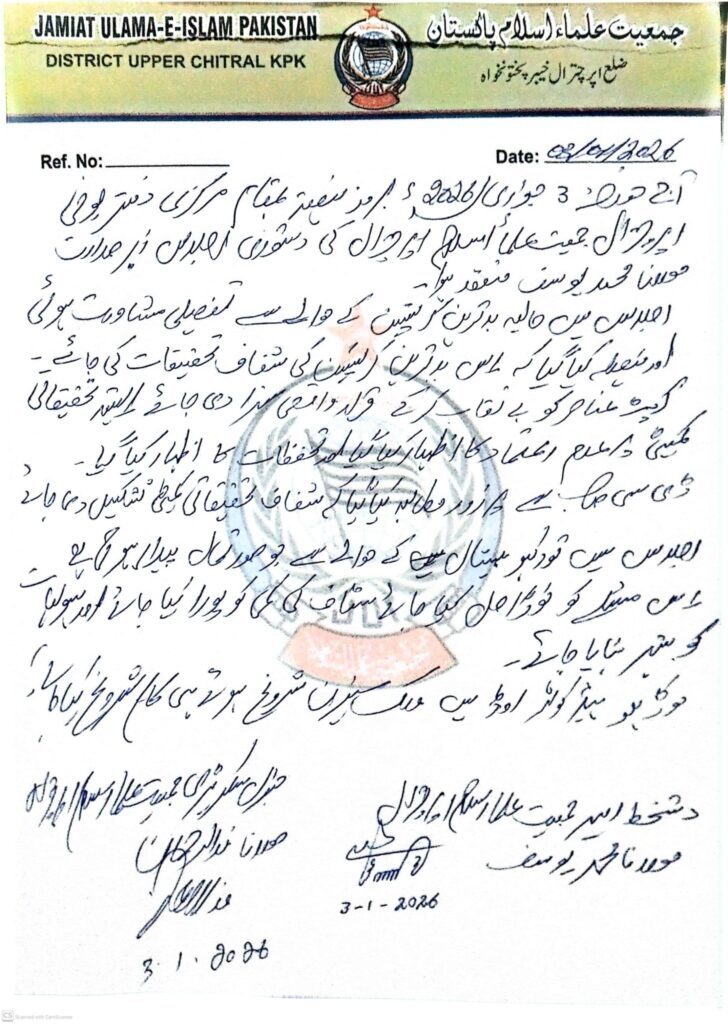 JAMIAT ULAMA-E-ISLAM PAKISTAN
DISTRICT UPPER CHITRAL KPK
جمعیت علماء اسلام پاکستان
ضلع اپر چترال خیبر پختونخواہ
Ref. No:
Date: 03/01/2026
آج مورخہ 3 جنوری 2026ء بروز ہفتہ بمقام مرکزی دفتر بونی
اپر چترال جمعیت علماء اسلام اپر چترال کی دستوری اجلاس زیر صدارت
مولانا محمد یوسف منعقد ہوا۔
اجلاس میں حالیہ بدترین کرپشن کے حوالے سے تفصیلی مشاورت ہوئی
اور فیصلہ کیا گیا کہ اس بدترین کرپشن کی شفاف تحقیقات کی جائے۔
کرپٹ عناصر کو بے نقاب کر کے قرار واقعی سزا دی جائے تحقیقاتی
کمیٹی پر عدم اعتماد کا اظہار کیا گیا اور تحفظات کا اظہار کیا گیا۔
ڈی سی صاحب سے پرزور مطالبہ کیا گیا کہ شفاف تحقیقاتی کمیٹی تشکیل دی جائے
اجلاس میں تورکہو ہسپتال کے حوالے سے جو صورتحال پیدا ہو چکی ہے
اس مسئلے کو فوراً حل کیا جائے سٹاف کی کمی کو پورا کیا جائے اور سہولیات
کو بہتر بنایا جائے۔
روڈ میں شروع ہوتے ہی کام شروع کیا جائے
دستخط امیر جمعیت علماء اسلام اپر چترال
مولانا محمد یوسف
3-1-2026
جنرل سیکرٹری جمعیت علماء اسلام اپر چترال
مولانا
3.1.2026
CS Scanned with CamScanner